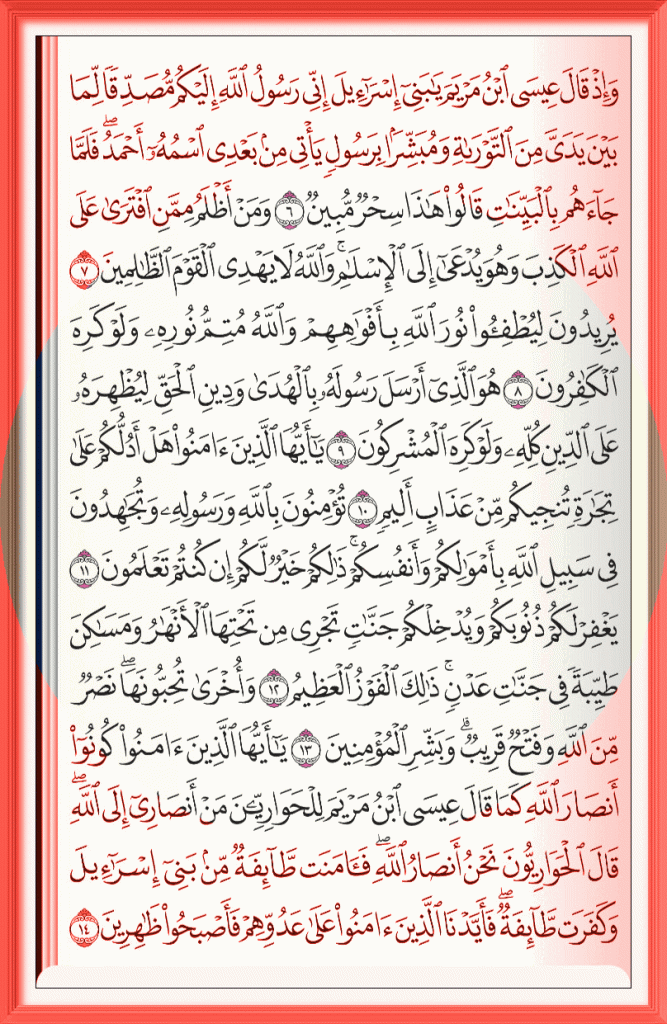 وَإِذۡ قَالَ عِيسَى ٱبۡنُ مَرۡيَمَ يَٰبَنِيٓ إِسۡرَٰٓءِيلَ إِنِّي رَسُولُ ٱللَّهِ إِلَيۡكُم مُّصَدِّقٗا لِّمَا
بَيۡنَ يَدَيَّ مِنَ ٱلتَّوۡرَىٰةِ وَمُبَشِّرَۢا بِرَسُولٖ يَأۡتِي مِنۢ بَعۡدِي ٱسۡمُهُۥٓ أَحۡمَدُۖ فَلَمَّا
جَآءَهُم بِٱلۡبَيِّنَٰتِ قَالُواْ هَٰذَا سِحۡرٞ مُّبِينٞ ٦ وَمَنۡ أَظۡلَمُ مِمَّنِ ٱفۡتَرَىٰ عَلَى
ٱللَّهِ ٱلۡكَذِبَ وَهُوَ يُدۡعَىٰٓ إِلَى ٱلۡإِسۡلَٰمِۚ وَٱللَّهُ لَا يَهۡدِي ٱلۡقَوۡمَ ٱلظَّٰلِمِينَ ٧
يُرِيدُونَ لِيُطۡفِـُٔواْ نُورَ ٱللَّهِ بِأَفۡوَٰهِهِمۡ وَٱللَّهُ مُتِمُّ نُورِهِۦ وَلَوۡ كَرِهَ
ٱلۡكَٰفِرُونَ ٨ هُوَ ٱلَّذِيٓ أَرۡسَلَ رَسُولَهُۥ بِٱلۡهُدَىٰ وَدِينِ ٱلۡحَقِّ لِيُظۡهِرَهُۥ
عَلَى ٱلدِّينِ كُلِّهِۦ وَلَوۡ كَرِهَ ٱلۡمُشۡرِكُونَ ٩ يَٰٓأَيُّهَا ٱلَّذِينَ ءَامَنُواْ هَلۡ أَدُلُّكُمۡ عَلَىٰ
تِجَٰرَةٖ تُنجِيكُم مِّنۡ عَذَابٍ أَلِيمٖ ١٠ تُؤۡمِنُونَ بِٱللَّهِ وَرَسُولِهِۦ وَتُجَٰهِدُونَ
فِي سَبِيلِ ٱللَّهِ بِأَمۡوَٰلِكُمۡ وَأَنفُسِكُمۡۚ ذَٰلِكُمۡ خَيۡرٞ لَّكُمۡ إِن كُنتُمۡ تَعۡلَمُونَ ١١
يَغۡفِرۡ لَكُمۡ ذُنُوبَكُمۡ وَيُدۡخِلۡكُمۡ جَنَّٰتٖ تَجۡرِي مِن تَحۡتِهَا ٱلۡأَنۡهَٰرُ وَمَسَٰكِنَ
طَيِّبَةٗ فِي جَنَّٰتِ عَدۡنٖۚ ذَٰلِكَ ٱلۡفَوۡزُ ٱلۡعَظِيمُ ١٢ وَأُخۡرَىٰ تُحِبُّونَهَاۖ نَصۡرٞ
مِّنَ ٱللَّهِ وَفَتۡحٞ قَرِيبٞۗ وَبَشِّرِ ٱلۡمُؤۡمِنِينَ ١٣ يَٰٓأَيُّهَا ٱلَّذِينَ ءَامَنُواْ كُونُوٓاْ
أَنصَارَ ٱللَّهِ كَمَا قَالَ عِيسَى ٱبۡنُ مَرۡيَمَ لِلۡحَوَارِيِّـۧنَ مَنۡ أَنصَارِيٓ إِلَى ٱللَّهِۖ
قَالَ ٱلۡحَوَارِيُّونَ نَحۡنُ أَنصَارُ ٱللَّهِۖ فَـَٔامَنَت طَّآئِفَةٞ مِّنۢ بَنِيٓ إِسۡرَٰٓءِيلَ
وَكَفَرَت طَّآئِفَةٞۖ فَأَيَّدۡنَا ٱلَّذِينَ ءَامَنُواْ عَلَىٰ عَدُوِّهِمۡ فَأَصۡبَحُواْ ظَٰهِرِينَ ١٤